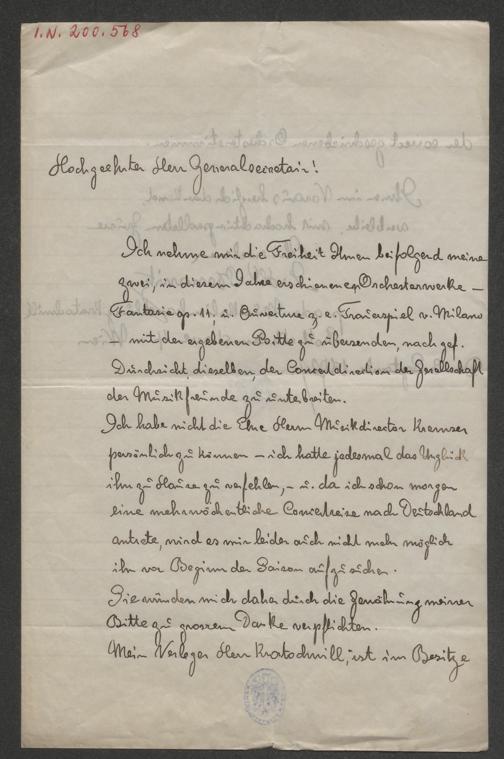 I.N. 200.568
Hochgeehrter Herr Generalsecretair!
Ich nehme mir die Freiheit Ihnen beifolgend meine
zwei, in diesem Jahre erschienenen Orchesterwerke –
Fantasie op. 11, u. Ouverture z. e. Trauerspiel v. Milano
– mit der ergebenen Bitte zu übersenden, nach gef.
Durchsicht dieselben, der Concertdirection der Gesellschaft
der Musikfreunde zu unterbreiten.
Ich habe nicht die Ehre Herrn Musikdirector Kremser
persönlich zu kennen – ich hatte jedesmal das Unglück
ihn zu Hause zu verfehlen, – u. da ich schon morgen
eine mehrwöchentliche Concertreise nach Deutschland
antrete, wird es mir leider auch nicht mehr möglich
ihn vor Beginn der Saison aufzusuchen.
Sie würden mich daher durch die Gewährung meiner
Bitte zu grossem Danke verpflichten.
Mein Verleger Herr Kratochwill, ist im Besitze